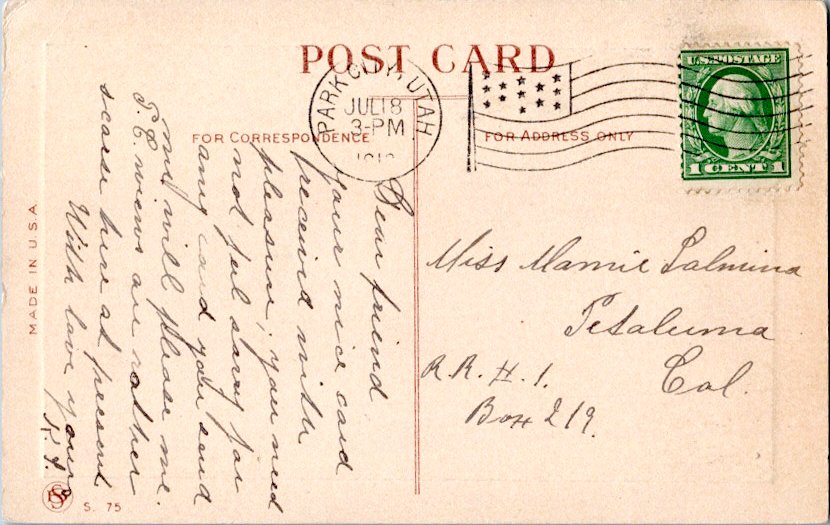 POST CARD
PARK CITY, UTAH
JUL 18
3-PM
U.S. POSTAGE
1 CENT 1
FOR CORRESPONDENCE
FOR ADDRESS ONLY
Dear friend
your nice card
received with
pleasure, you need
not feel sorry for
any card you send
me, will please me.
T.C. views are rather
scarse here at present
With love yours
Miss Mamie Salmina
Petaluma
R.R. #. 1. Cal.
Box 219.
MADE IN U.S.A
S. 75